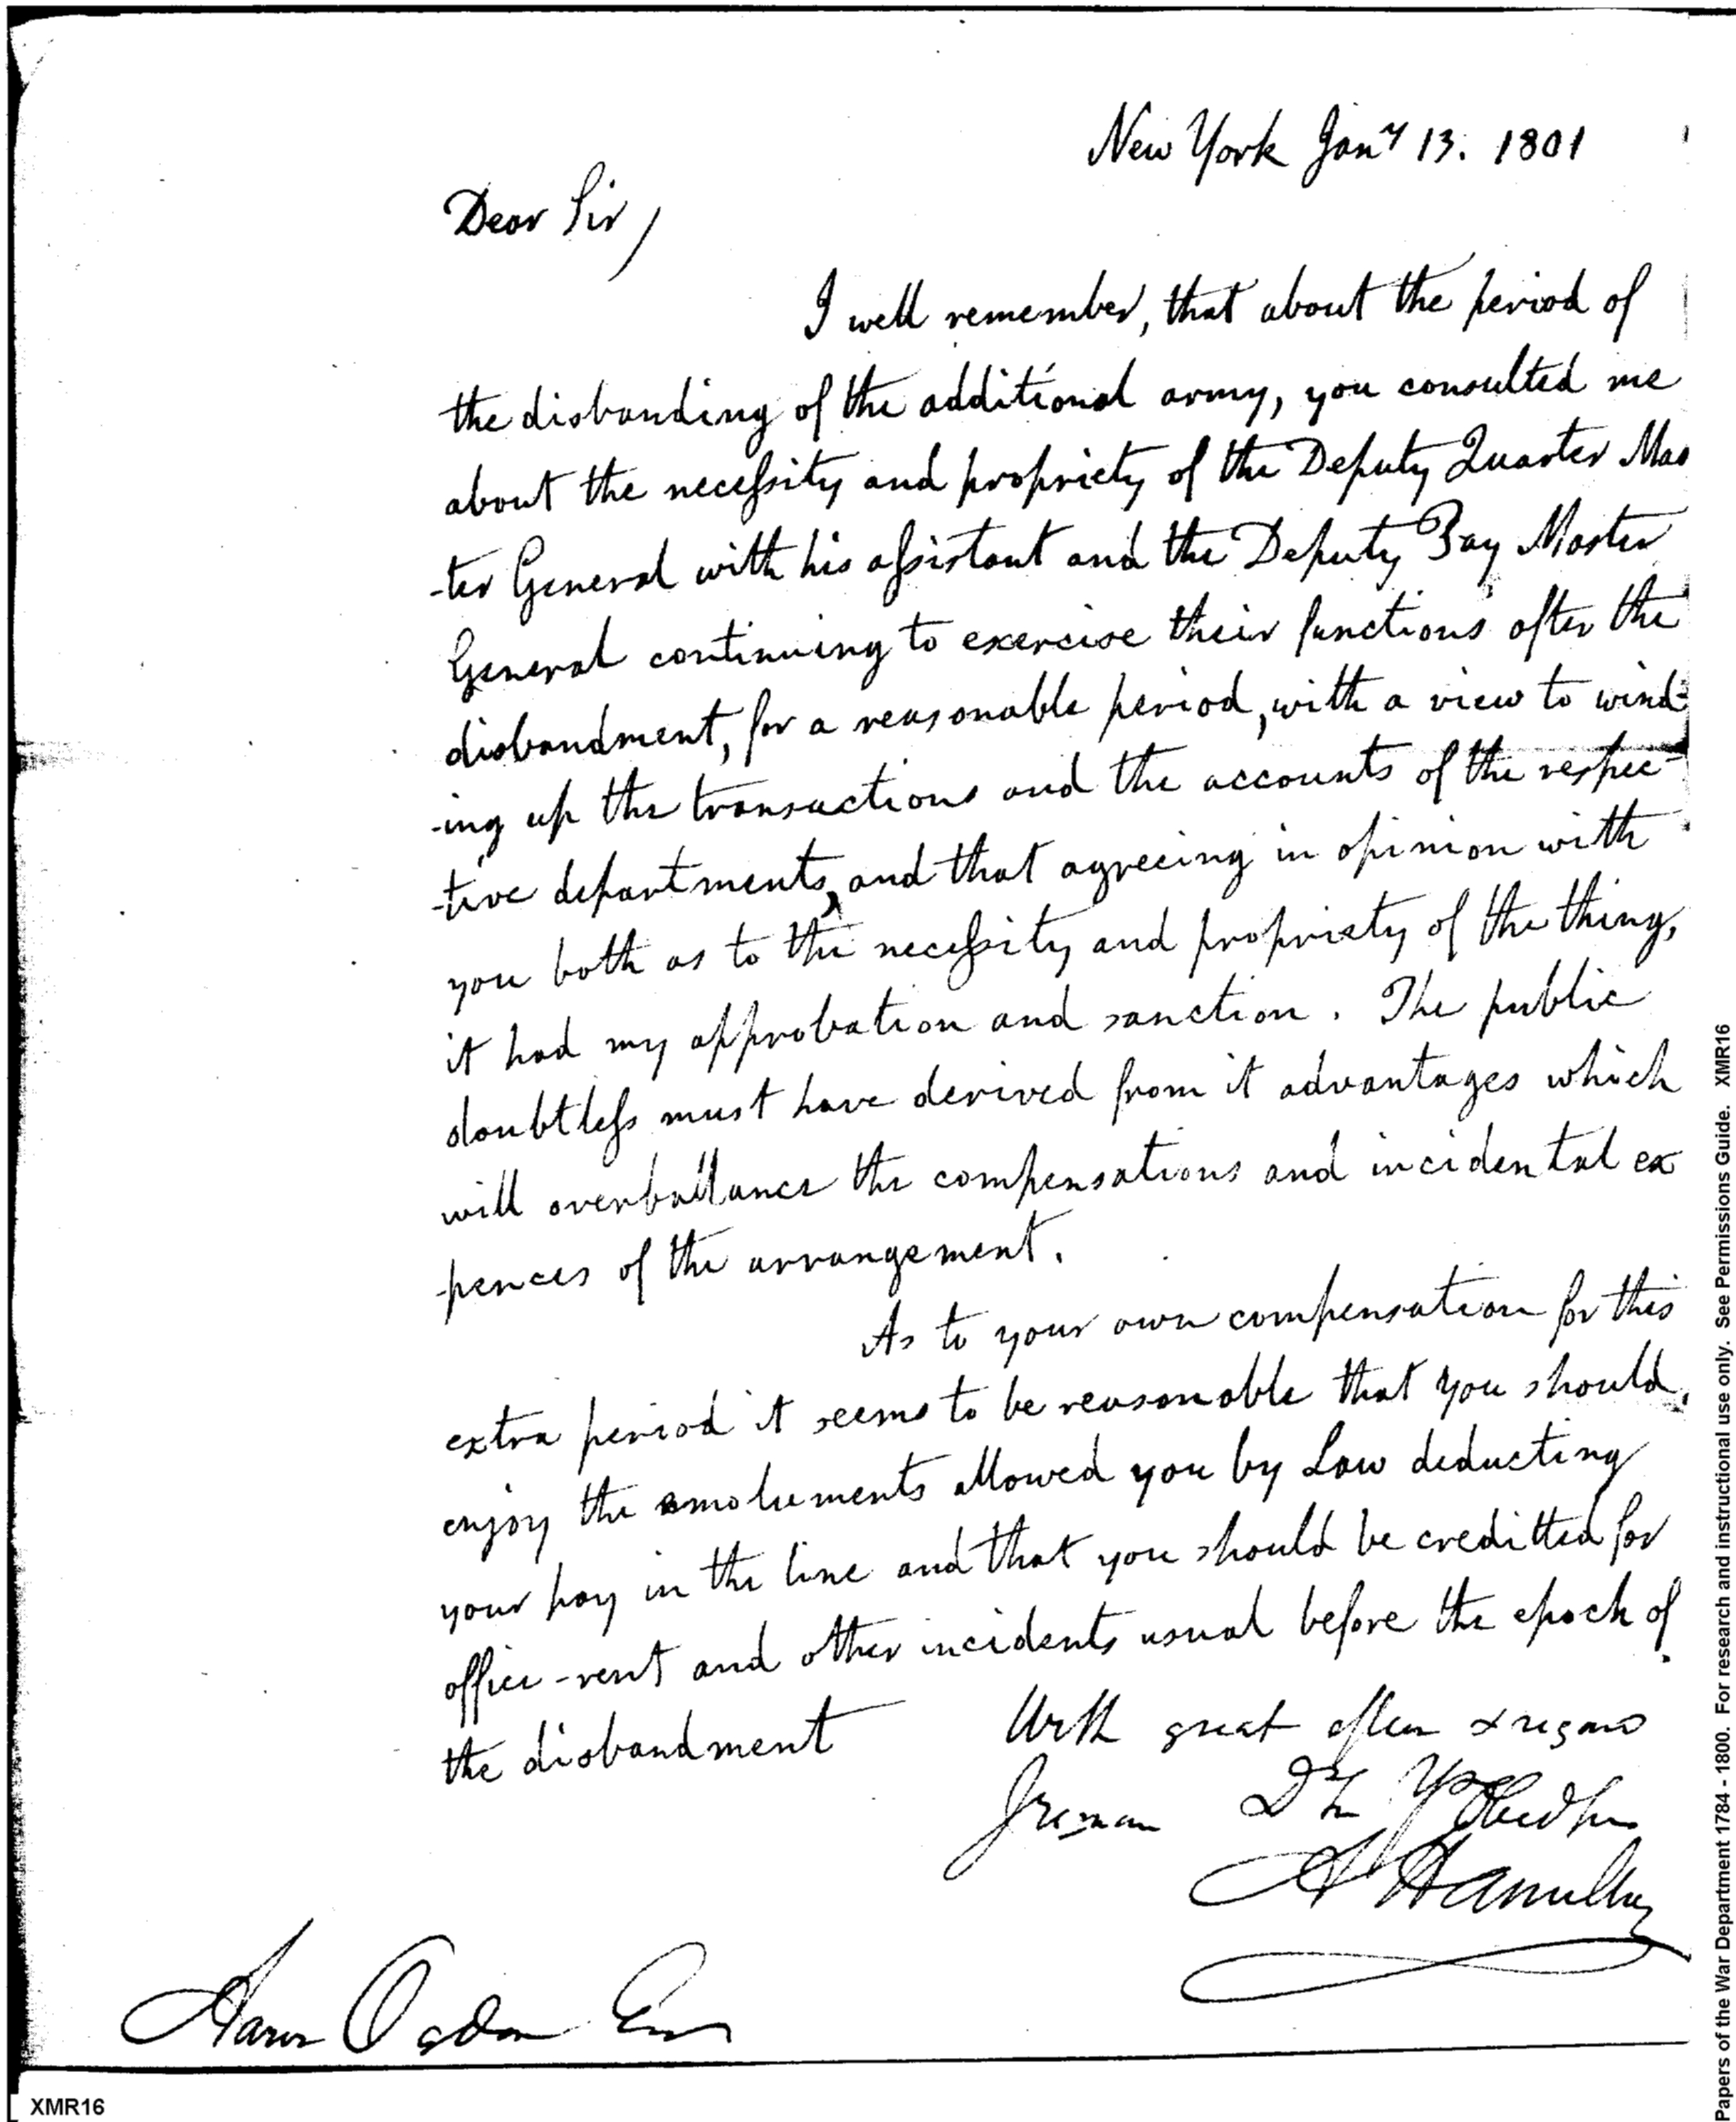 New York Jany 13. 1801
Dear Sir,
I well remember, that about the period of
the disbanding of the additional army, you consulted me
about the necessity and propriety of the Deputy Quarter Mas
-ter General with his assistant and the Deputy Pay Master
General continuing to exercise their functions after the
disbandment, for a reasonable period, with a view to wind-
-ing up the transactions and the accounts of the respec-
-tive departments, and that agreeing in opinion with
you both as to the necessity and propriety of the thing,
it had my approbation and sanction. The public
doubtless must have derived from it advantages which
will overballance the compensations and incidental ex
-pences of the arrangement.
As to your own compensation for this
extra period it seems to be reasonable that you should,
enjoy the emoluments allowed you by Law deducting
your pay in the line and that you should be creditted for
office-rent and other incidents usual before the epoch of
the disbandment
With great esteem & regard
I remain Dr Sir Yr Obed ser
A Hamilton
Aaron Ogden Esq
XMR16
Papers of the War Department 1784 - 1800. For research and instructional use only. See Permissions Guide. XMR16